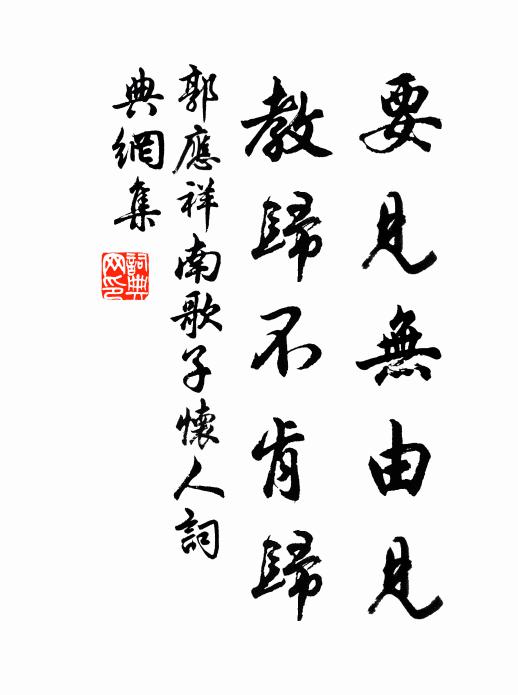 要見無由見
教歸不肯歸
郭應祥南歌子懷人詞
典網集
詞典网印